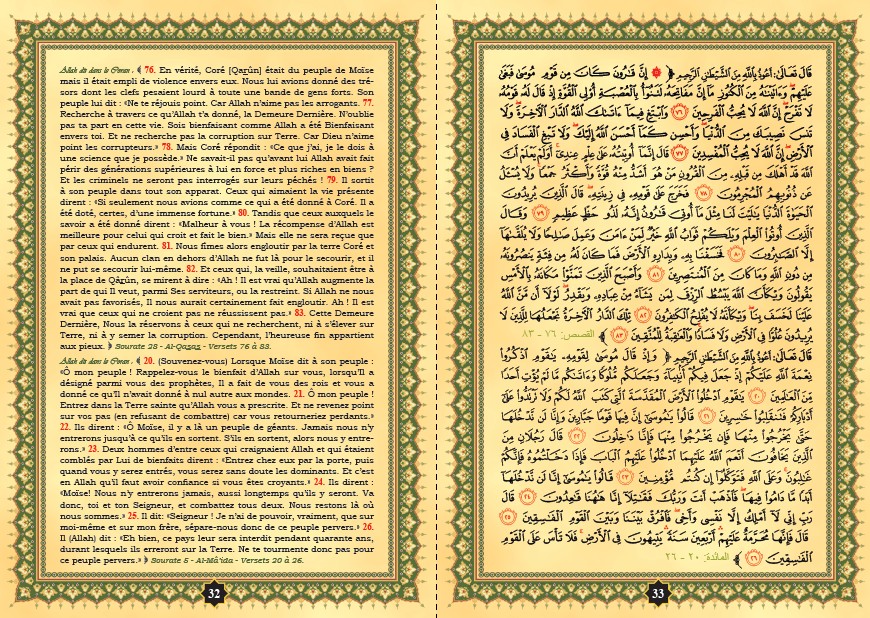 Allah dit dans le Coran : ﴾ 76. En vérité, Coré [Qarûn] était du peuple de Moïse
mais il était empli de violence envers eux. Nous lui avions donné des tré-
sors dont les clefs pesaient lourd à toute une bande de gens forts. Son
peuple lui dit : «Ne te réjouis point. Car Allah n'aime pas les arrogants. 77.
Recherche à travers ce qu'Allah t'a donné, la Demeure Dernière. N'oublie
pas ta part en cette vie. Sois bienfaisant comme Allah a été Bienfaisant
envers toi. Et ne recherche pas la corruption sur Terre. Car Dieu n'aime
point les corrupteurs.» 78. Mais Coré répondit : «Ce que j'ai, je le dois à
une science que je possède.» Ne savait-il pas qu'avant lui Allah avait fait
périr des générations supérieures à lui en force et plus riches en biens ?
Et les criminels ne seront pas interrogés sur leurs péchés ! 79. Il sortit
à son peuple dans tout son apparat. Ceux qui aimaient la vie présente
dirent : «Si seulement nous avions comme ce qui a été donné à Coré. Il a
été doté, certes, d'une immense fortune.» 80. Tandis que ceux auxquels le
savoir a été donné dirent : «Malheur à vous ! La récompense d'Allah est
meilleure pour celui qui croit et fait le bien.» Mais elle ne sera reçue que
par ceux qui endurent. 81. Nous fîmes alors engloutir par la terre Coré et
son palais. Aucun clan en dehors d'Allah ne fut là pour le secourir, et il
ne put se secourir lui-même. 82. Et ceux qui, la veille, souhaitaient être à
la place de Qârûn, se mirent à dire : «Ah ! Il est vrai qu'Allah augmente la
part de qui Il veut, parmi Ses serviteurs, ou la restreint. Si Allah ne nous
avait pas favorisés, Il nous aurait certainement fait engloutir. Ah ! Il est
vrai que ceux qui ne croient pas ne réussissent pas.» 83. Cette Demeure
Dernière, Nous la réservons à ceux qui ne recherchent, ni à s'élever sur
Terre, ni à y semer la corruption. Cependant, l'heureuse fin appartient
aux pieux. ﴿ Sourate 28 - Al-Qaṣaṣ - Versets 76 à 83.
Allah dit dans le Coran : ﴾ 20. (Souvenez-vous) Lorsque Moïse dit à son peuple :
«Ô mon peuple ! Rappelez-vous le bienfait d'Allah sur vous, lorsqu'Il a
désigné parmi vous des prophètes, Il a fait de vous des rois et vous a
donné ce qu'Il n'avait donné à nul autre aux mondes. 21. Ô mon peuple !
Entrez dans la Terre sainte qu'Allah vous a prescrite. Et ne revenez point
sur vos pas (en refusant de combattre) car vous retourneriez perdants.»
22. Ils dirent : «Ô Moïse, il y a là un peuple de géants. Jamais nous n'y
entrerons jusqu'à ce qu'ils en sortent. S'ils en sortent, alors nous y entre-
rons.» 23. Deux hommes d'entre ceux qui craignaient Allah et qui étaient
comblés par Lui de bienfaits dirent : «Entrez chez eux par la porte, puis
quand vous y serez entrés, vous serez sans doute les dominants. Et c'est
en Allah qu'il faut avoir confiance si vous êtes croyants.» 24. Ils dirent :
«Moïse! Nous n'y entrerons jamais, aussi longtemps qu'ils y seront. Va
donc, toi et ton Seigneur, et combattez tous deux. Nous restons là où
nous sommes.» 25. Il dit: «Seigneur ! Je n'ai de pouvoir, vraiment, que sur
moi-même et sur mon frère, sépare-nous donc de ce peuple pervers.» 26.
Il (Allah) dit : «Eh bien, ce pays leur sera interdit pendant quarante ans,
durant lesquels ils erreront sur la Terre. Ne te tourmente donc pas pour
ce peuple pervers.» ﴿ Sourate 5 - Al-Mâ'ida - Versets 20 à 26.
32
قال تعالى: أعوذ بالله من الشيطان الرجيم ﴿ ٧٦ إن قارون كان من قوم موسى فبغى
عليهم وءاتيناه من الكنوز ما إن مفاتحه لتنوأ بالعصبة أولي القوة إذ قال له قومه
لا تفرح إن الله لا يحب الفرحين ٧٦ وابتغ فيما ءاتاك الله الدار الآخرة ولا
تنس نصيبك من الدنيا وأحسن كما أحسن الله إليك ولا تبغ الفساد في
الأرض إن الله لا يحب المفسدين ٧٧ قال إنما أوتيته على علم عندي أولم يعلم أن
الله قد أهلك من قبله من القرون من هو أشد منه قوة وأكثر جمعا ولا يسئل
عن ذنوبهم المجرمون ٧٨ فخرج على قومه في زينته قال الذين يريدون
الحيوة الدنيا يليت لنا مثل ما أوتي قارون إنه لذو حظ عظيم ٧٩ وقال
الذين أوتوا العلم ويلكم ثواب الله خير لمن ءامن وعمل صالحا ولا يلقاها
إلا الصابرون ٨٠ فخسفنا به وبداره الأرض فما كان له من فئة ينصرونه
من دون الله وما كان من المنتصرين ٨١ وأصبح الذين تمنوا مكانه بالأمس
يقولون ويكأن الله يبسط الرزق لمن يشاء من عباده ويقدر لولا أن من الله
علينا لخسف بنا ويكأنه لا يفلح الكافرون ٨٢ تلك الدار الآخرة نجعلها للذين لا
يريدون علوا في الأرض ولا فسادا والعاقبة للمتقين ٨٣ ﴾ القصص: ٧٦ - ٨٣
قال تعالى: أعوذ بالله من الشيطان الرجيم ﴿ وإذ قال موسى لقومه يقوم اذكروا
نعمة الله عليكم إذ جعل فيكم أنبياء وجعلكم ملوكا وءاتاكم ما لم يؤت أحدا
من العالمين ٢٠ يقوم ادخلوا الأرض المقدسة التي كتب الله لكم ولا ترتدوا على
أدباركم فتنقلبوا خاسرين ٢١ قالوا يموسى إن فيها قوما جبارين وإنا لن ندخلها
حتى يخرجوا منها فإن يخرجوا منها فإنا داخلون ٢٢ قال رجلان من
الذين يخافون أنعم الله عليهما ادخلوا عليهم الباب فإذا دخلتموه فإنكم
غالبون وعلى الله فتوكلوا إن كنتم مؤمنين ٢٣ قالوا يموسى إنا لن ندخلها
أبدا ما داموا فيها فاذهب أنت وربك فقاتلا إنا هاهنا قاعدون ٢٤ قال
رب إني لا أملك إلا نفسي وأخي فافرق بيننا وبين القوم الفاسقين ٢٥
قال فإنها محرمة عليهم أربعين سنة يتيهون في الأرض فلا تأس على القوم
الفاسقين ٢٦ ﴾ المائدة: ٢٠ - ٢٦
33